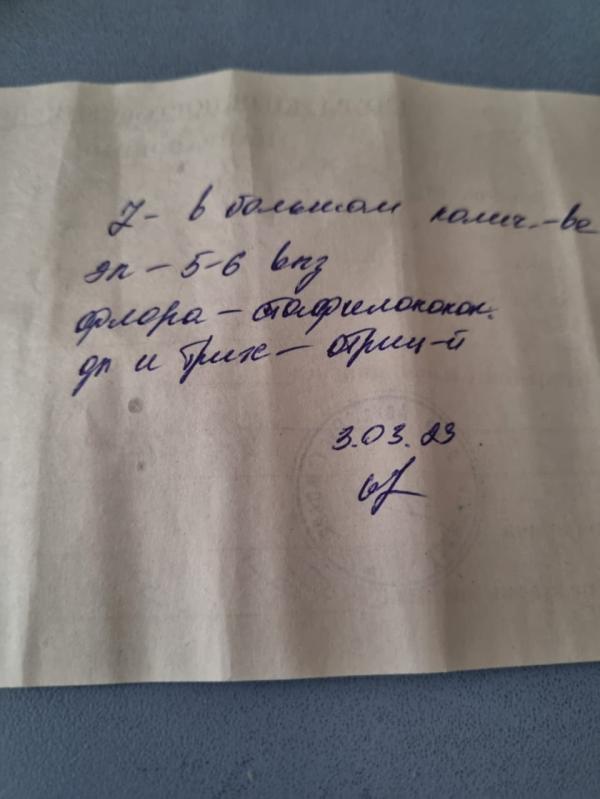 L - в большом колич.-ве
эп - 5-6 впз
флора - стафилококок.
дп и трих - отриц-й
3.03.23